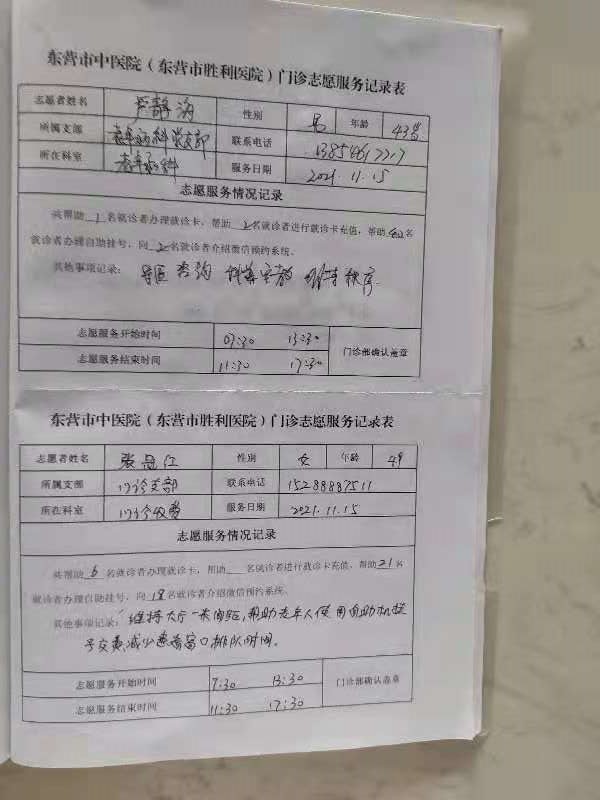 东营市中医院（东营市胜利医院）门诊志愿服务记录表
志愿者姓名 芦静 性别 男 年龄 43岁
所属支部 支部 联系电话 13854617717
所在科室 科 服务日期 2021.11.15
志愿服务情况记录
共帮助 1 名就诊者办理就诊卡，帮助 2 名就诊者进行就诊卡充值，帮助 名
就诊者办理自助挂号，向 2 名就诊者介绍微信预约系统。
其他事项记录：导医 咨询 维持秩序
志愿服务开始时间 07:30 13:30
志愿服务结束时间 11:30 17:30
门诊部确认盖章
东营市中医院（东营市胜利医院）门诊志愿服务记录表
志愿者姓名 张 红 性别 女 年龄 49
所属支部 门诊支部 联系电话 15288887511
所在科室 门诊收费 服务日期 2021.11.15
志愿服务情况记录
共帮助 6 名就诊者办理就诊卡，帮助 名就诊者进行就诊卡充值，帮助 21 名
就诊者办理自助挂号，向 18 名就诊者介绍微信预约系统。
其他事项记录：维持大厅一米间距，帮助老年人使用自助机挂
号交费，减少患者窗口排队时间。
志愿服务开始时间 7:30 13:30
志愿服务结束时间 11:30 17:30
门诊部确认盖章